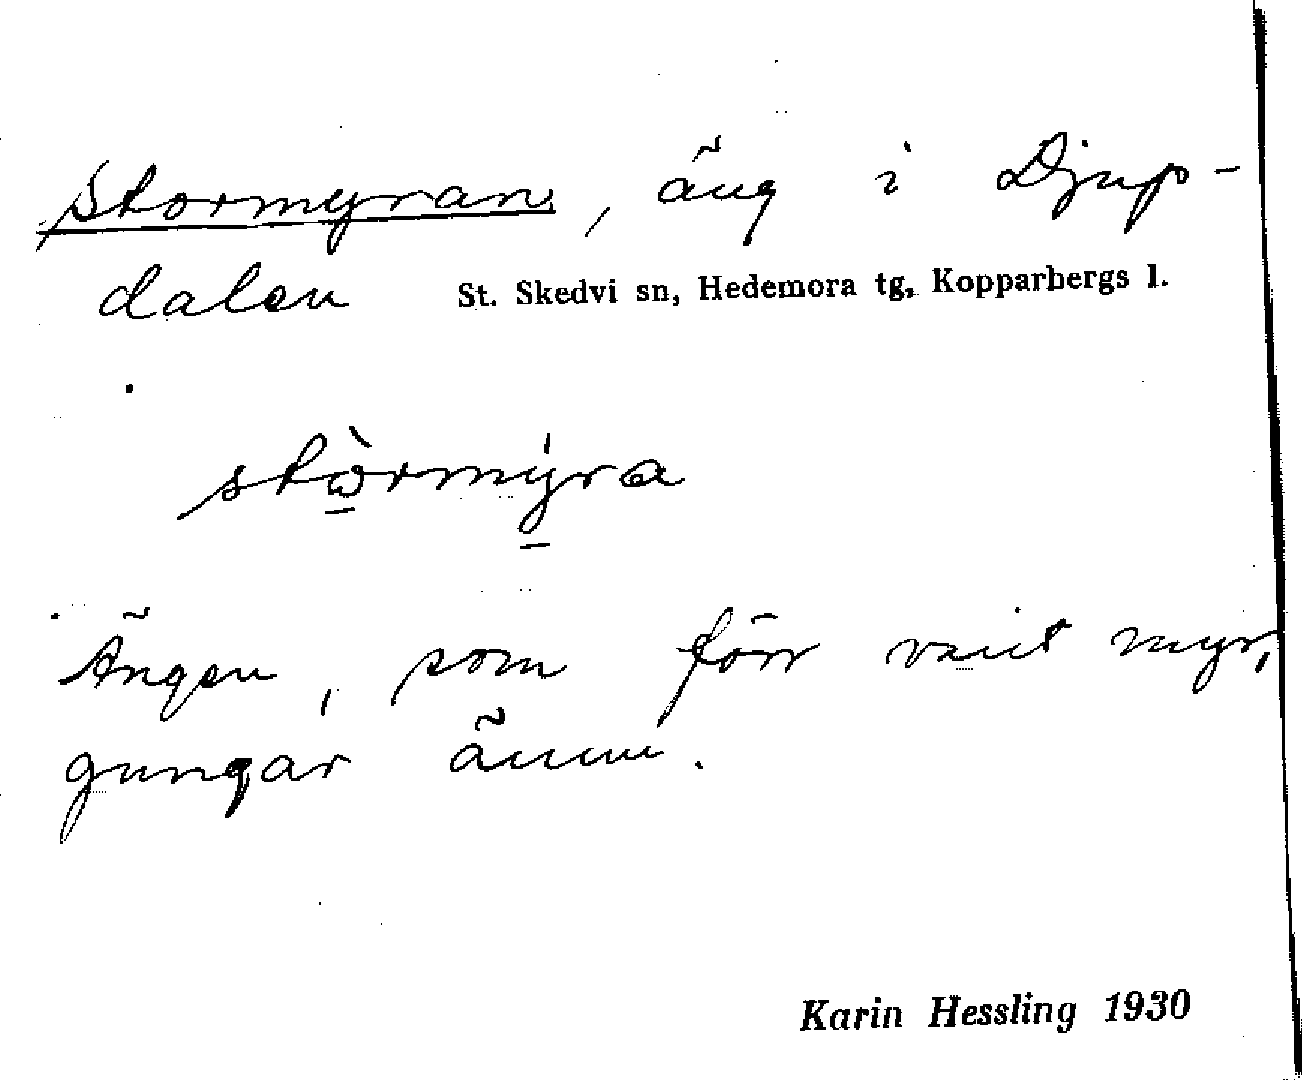 Stormyran, äng i Djup-
dalen St. Skedvi sn, Hedemora tg, Kopparbergs l.
stɷ̀rmýra
Ängen, som förr varit myr,
gungar ännu.
Karin Hessling 1930